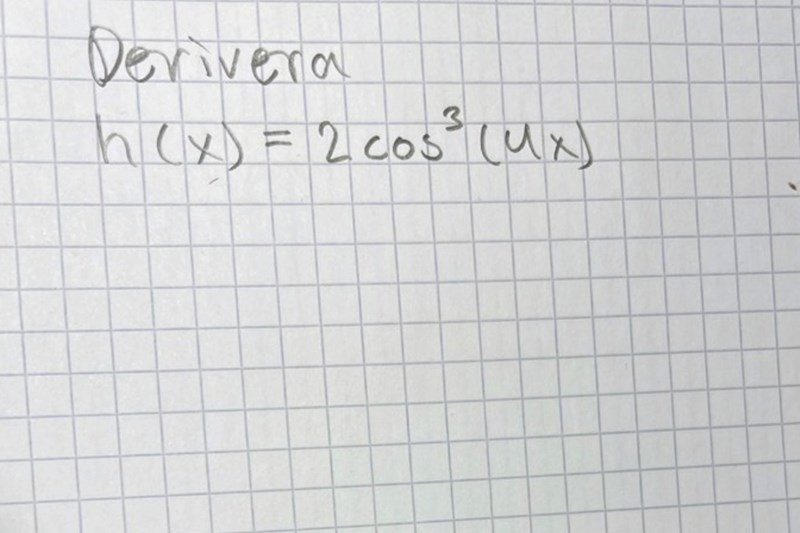 Derivera
h(x) = 2 cos³ (4x)